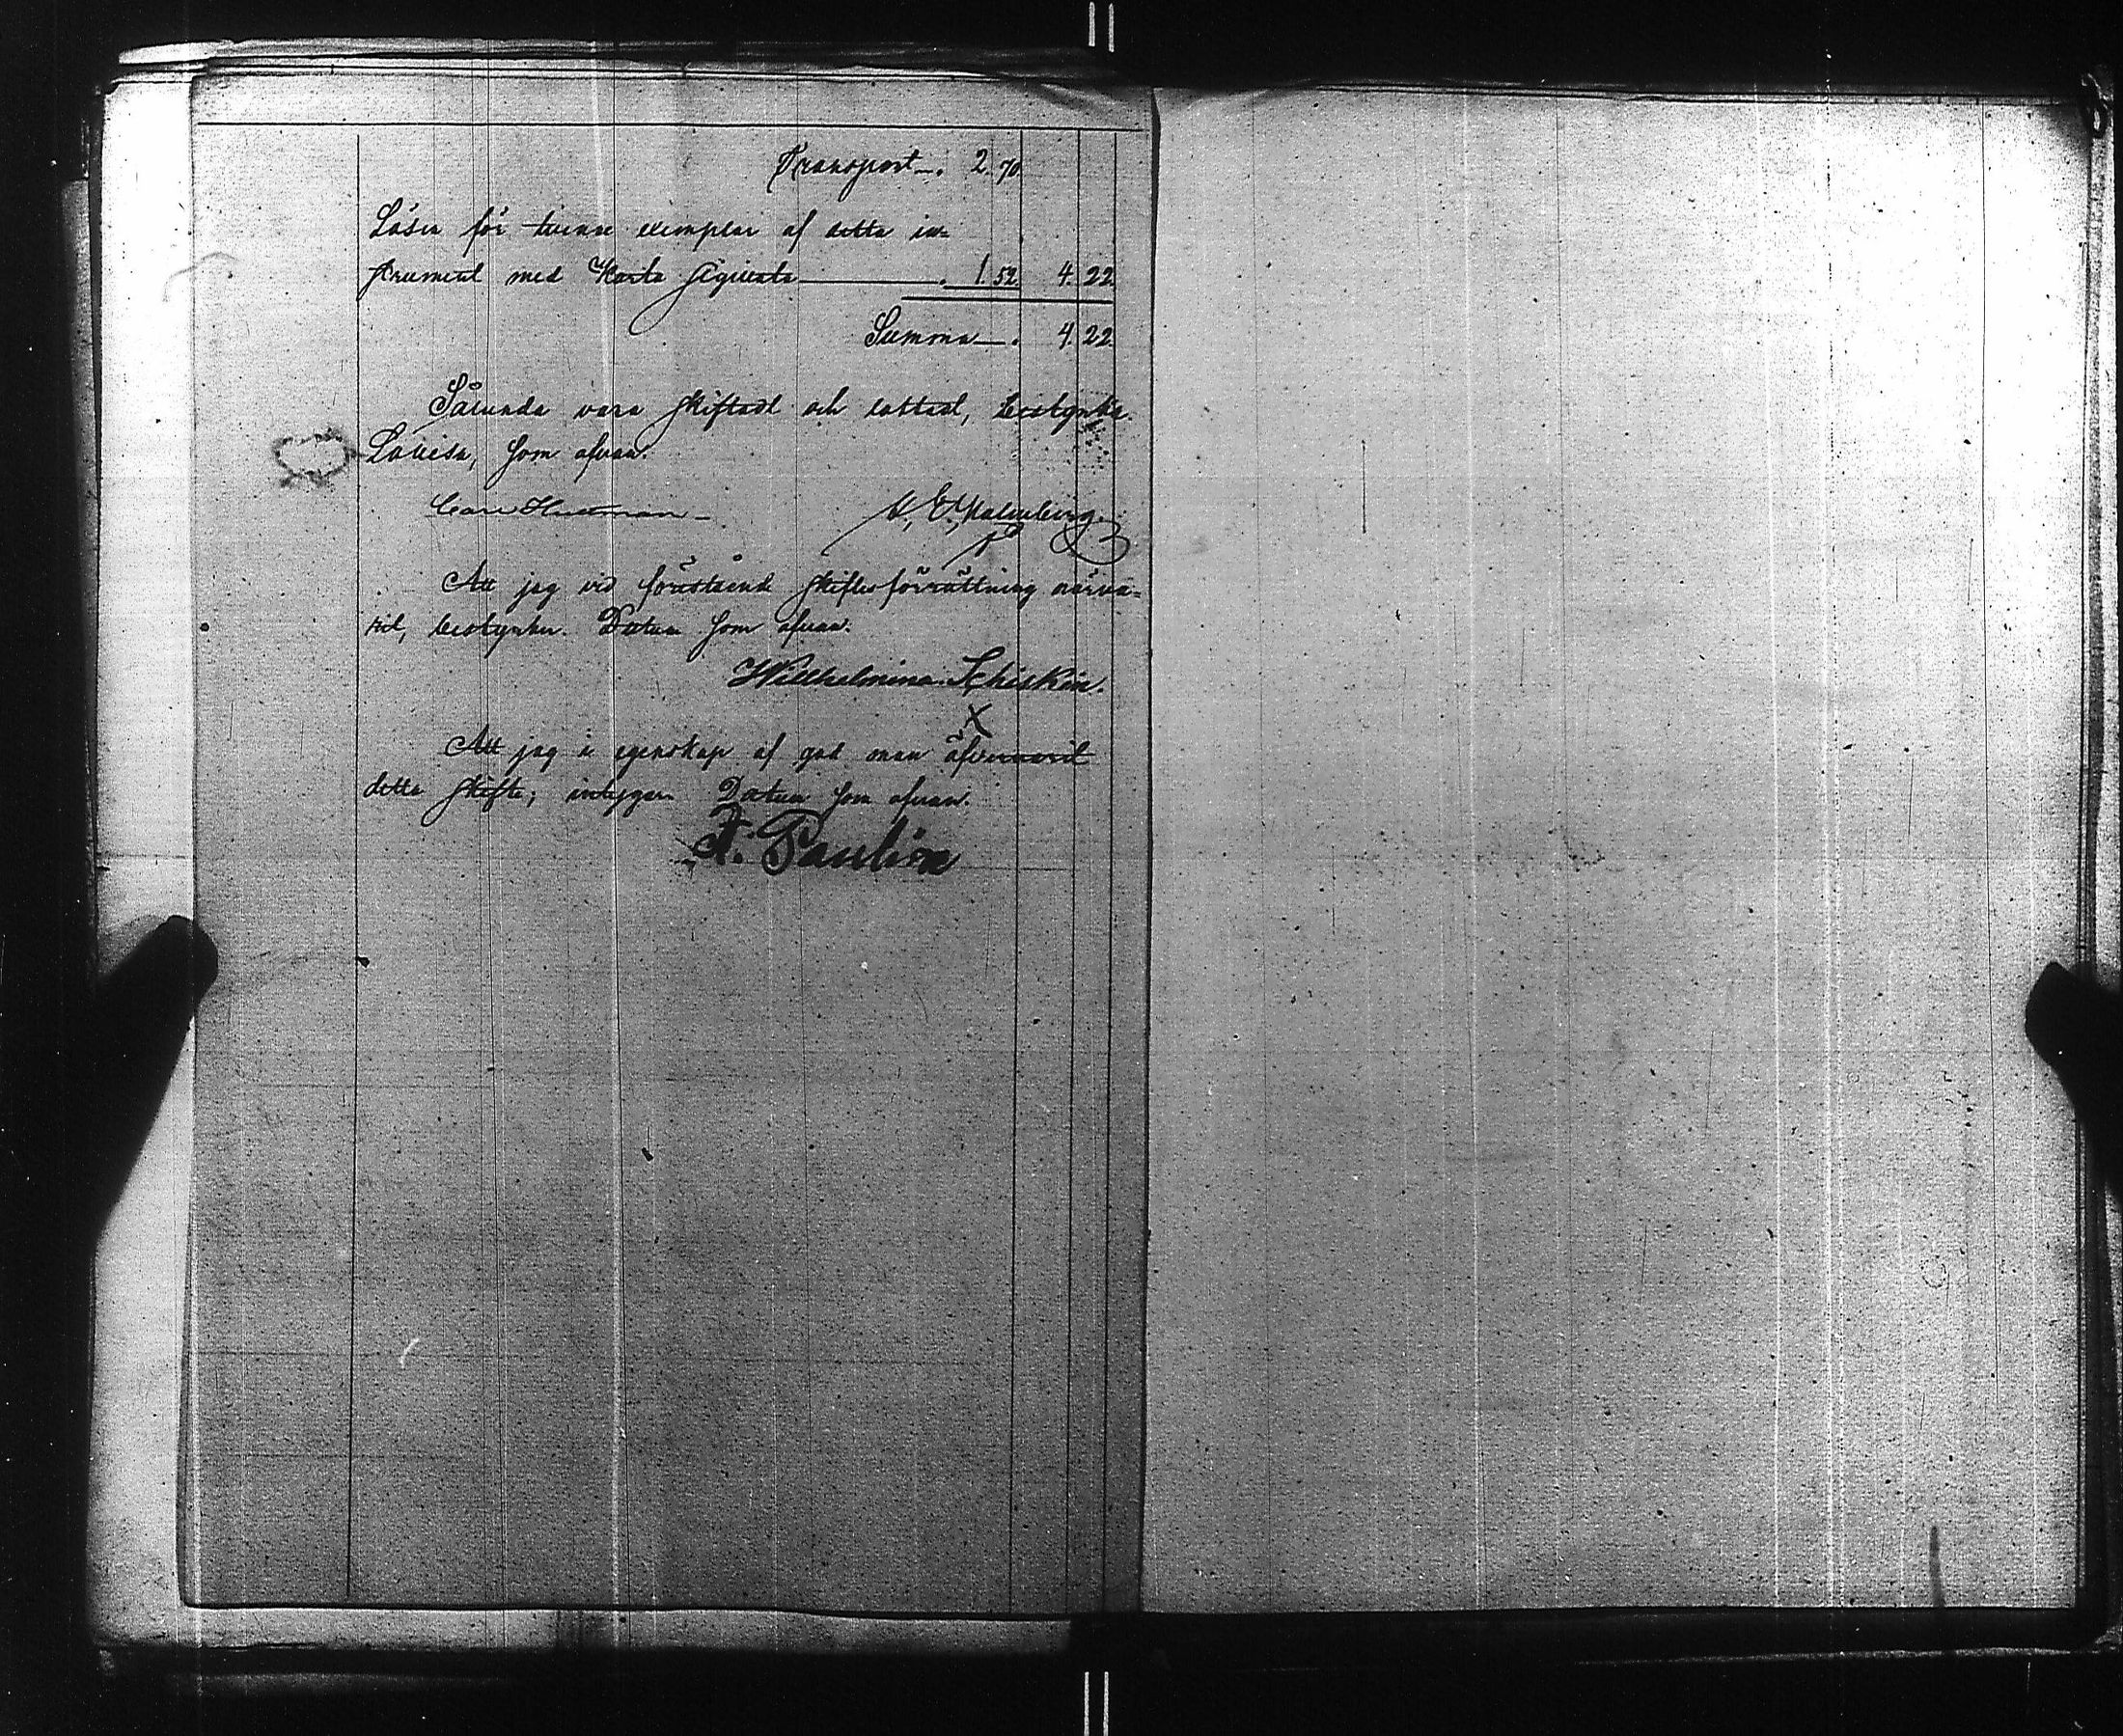 Transport —. 2. 70.
Lösen för tvenne exemplar af detta in-
strument med Karta sigillata — . 1. 52. 4. 22.
Summa —. 4. 22.
Sålunda vara skiftadt och lottadt, bestyrka.
Lovisa, som ofvan.
Carl Hultman
E. Malmberg.
Att jag vid förestående skiftesförrättning närva-
rit, bestyrker. Datum som ofvan.
Wilhelmina Schiskin.
X
Att jag i egenskap af god man öfvervarit
detta skifte; intygar. Datum som ofvan.
F. Paulin